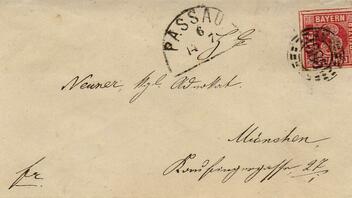 PASSAU
6
14 7
BAYERN
Neuner, Kgl. Advokat.
München
Kaufingergasse 27.
fr.